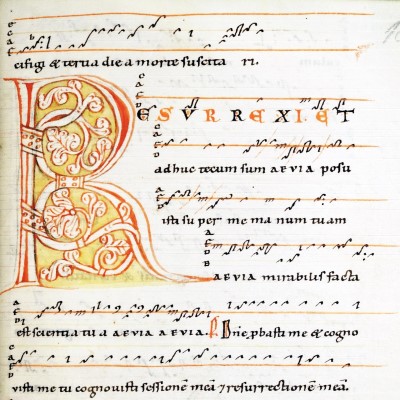 cifigi & tertia die a morte suscita ri.
RESURREXI. ET
adhuc tecum sum AEVIA posu
isti super me manum tuam
AEVIA mirabilis facta
est scientia tua AEVIA AEVIA. Dne, pbasti me & cogno
visti me tu cognovisti sessionē meā 7 resurrectionē meā.